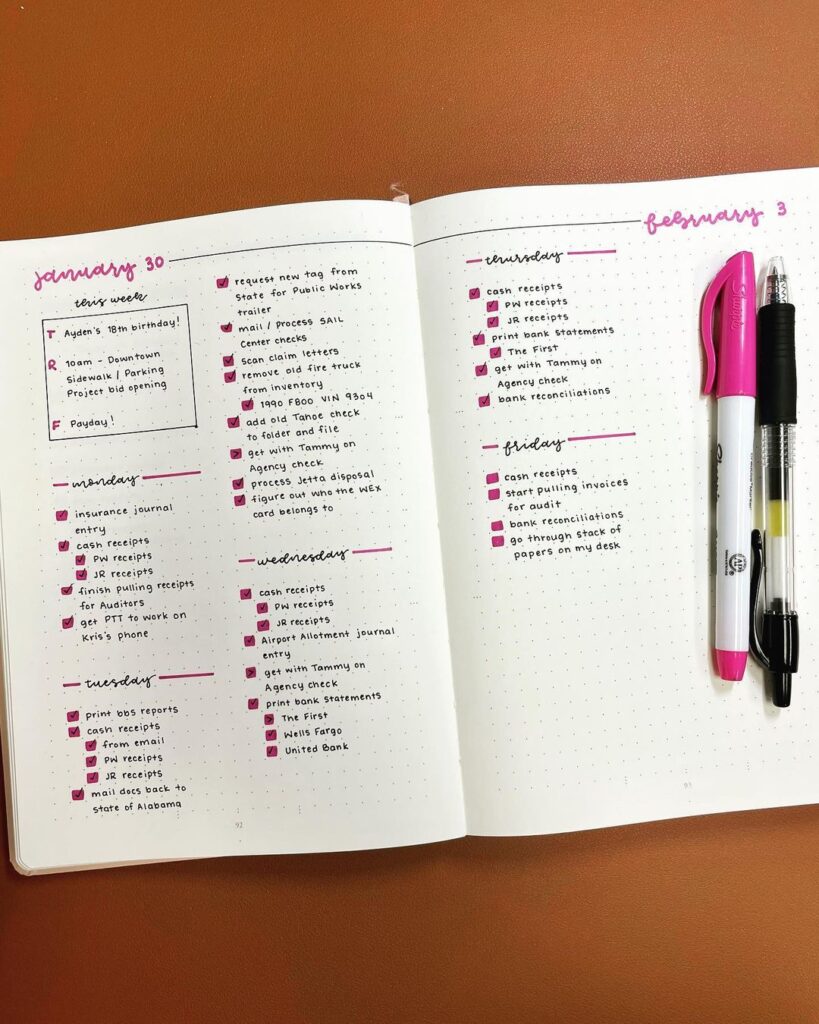 january 30
this week
T Ayden's 18th birthday!
R 10am - Downtown
Sidewalk / Parking
Project bid opening
F Payday!
monday
insurance journal
entry
cash receipts
PW receipts
JR receipts
finish pulling receipts
for Auditors
get PTT to work on
Kris's phone
tuesday
print bbs reports
cash receipts
from email
PW receipts
JR receipts
mail docs back to
state of Alabama
92
request new tag from
State for Public Works
trailer
mail / Process SAIL
Center checks
scan claim letters
remove old fire truck
from inventory
1990 F800 VIN 9304
add old Tahoe check
to folder and file
get with Tammy on
Agency check
process Jetta disposal
figure out who the WEX
card belongs to
wednesday
cash receipts
PW receipts
JR receipts
Airport Allotment journal
entry
get with Tammy on
Agency check
print bank statements
The First
Wells Fargo
United Bank
february 3
thursday
cash receipts
PW receipts
JR receipts
print bank statements
The First
get with Tammy on
Agency check
bank reconciliations
friday
cash receipts
start pulling invoices
for audit
bank reconciliations
go through stack of
papers on my desk
93
Sharpie